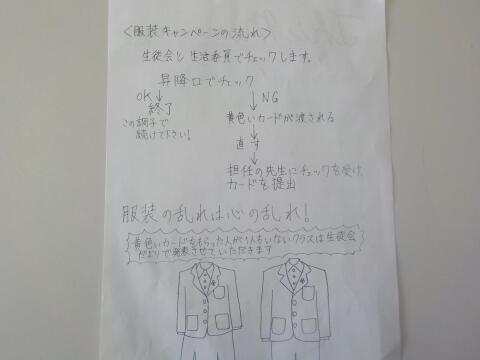 <服装キャンペーンの流れ>
生徒会と生活委員でチェックします。
昇降口でチェック
OK
終了
この調子で
続けて下さい!
NG
黄色いカードが渡される
直す
担任の先生にチェックを受け
カードを提出
服装の乱れは心の乱れ!
黄色いカードをもらった人が1人もいないクラスは生徒会
だよりで発表させていただきます